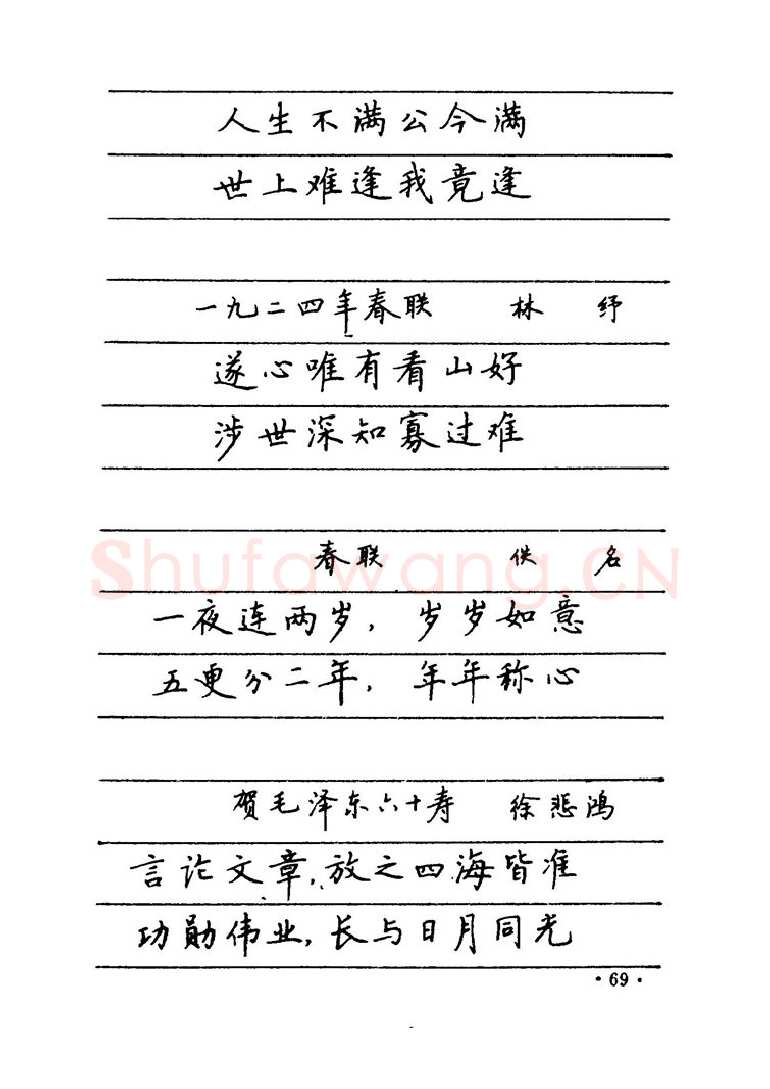 人生不满公今满
世上难逢我竟逢
一九二四年春联 林纾
遂心唯有看山好
涉世深知寡过难
春联 佚名
Shufawang.CN
一夜连两岁，岁岁如意
五更分二年，年年称心
贺毛泽东六十寿 徐悲鸿
言论文章，放之四海皆准
功勋伟业，长与日月同光
·69·